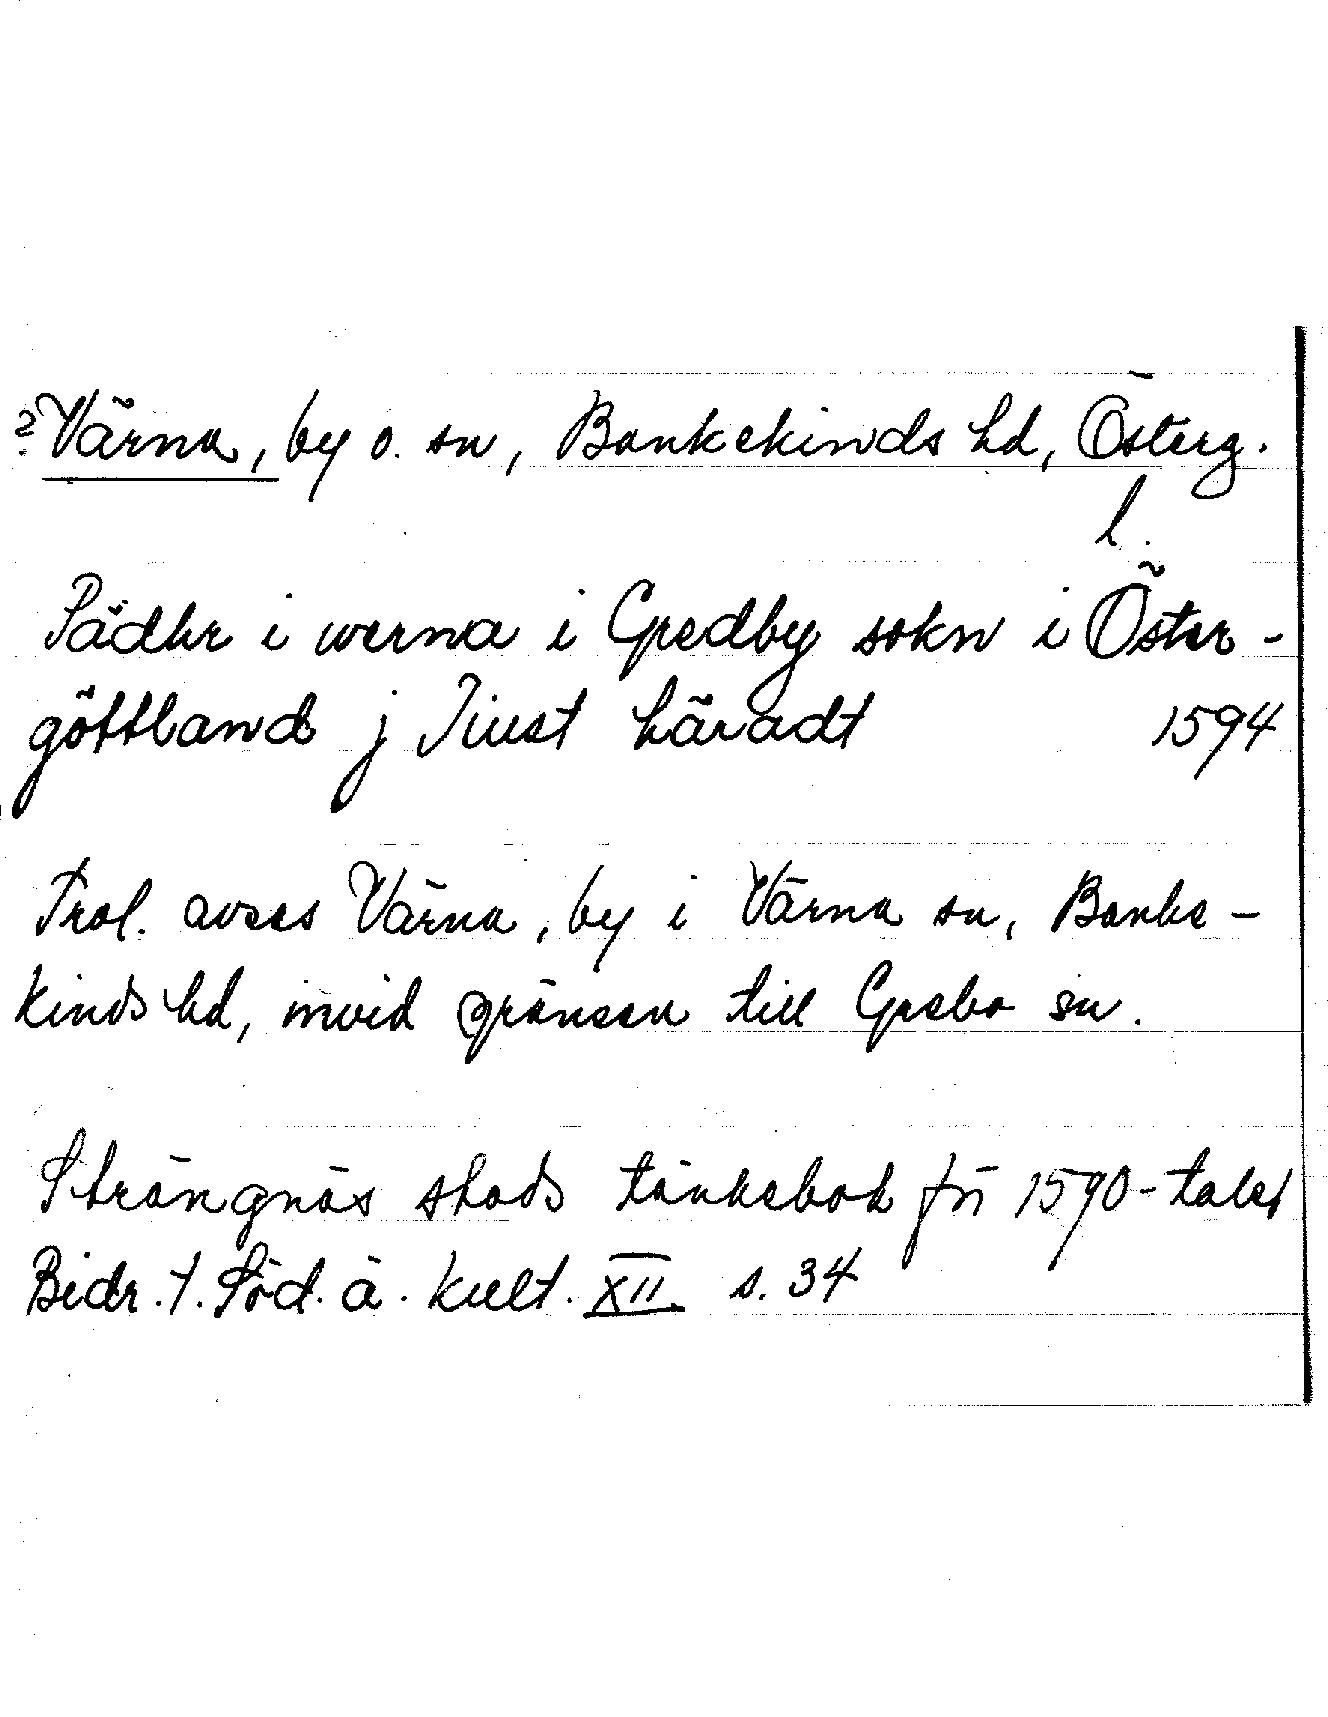 ? Värna, by o. sn, Bankekinds hd, Österg.
l.
Pädhr i werna i Gredby sokn i Öster-
göttland j Jiust häradt 1594
Trol. avses Värna, by i Värna sn, Banke-
kinds hd, invid gränsen till Grebo sn.
Strängnäs stads tänkebok fr 1590-talet
Bidr. t. Söd. ä. kult. XII s. 34